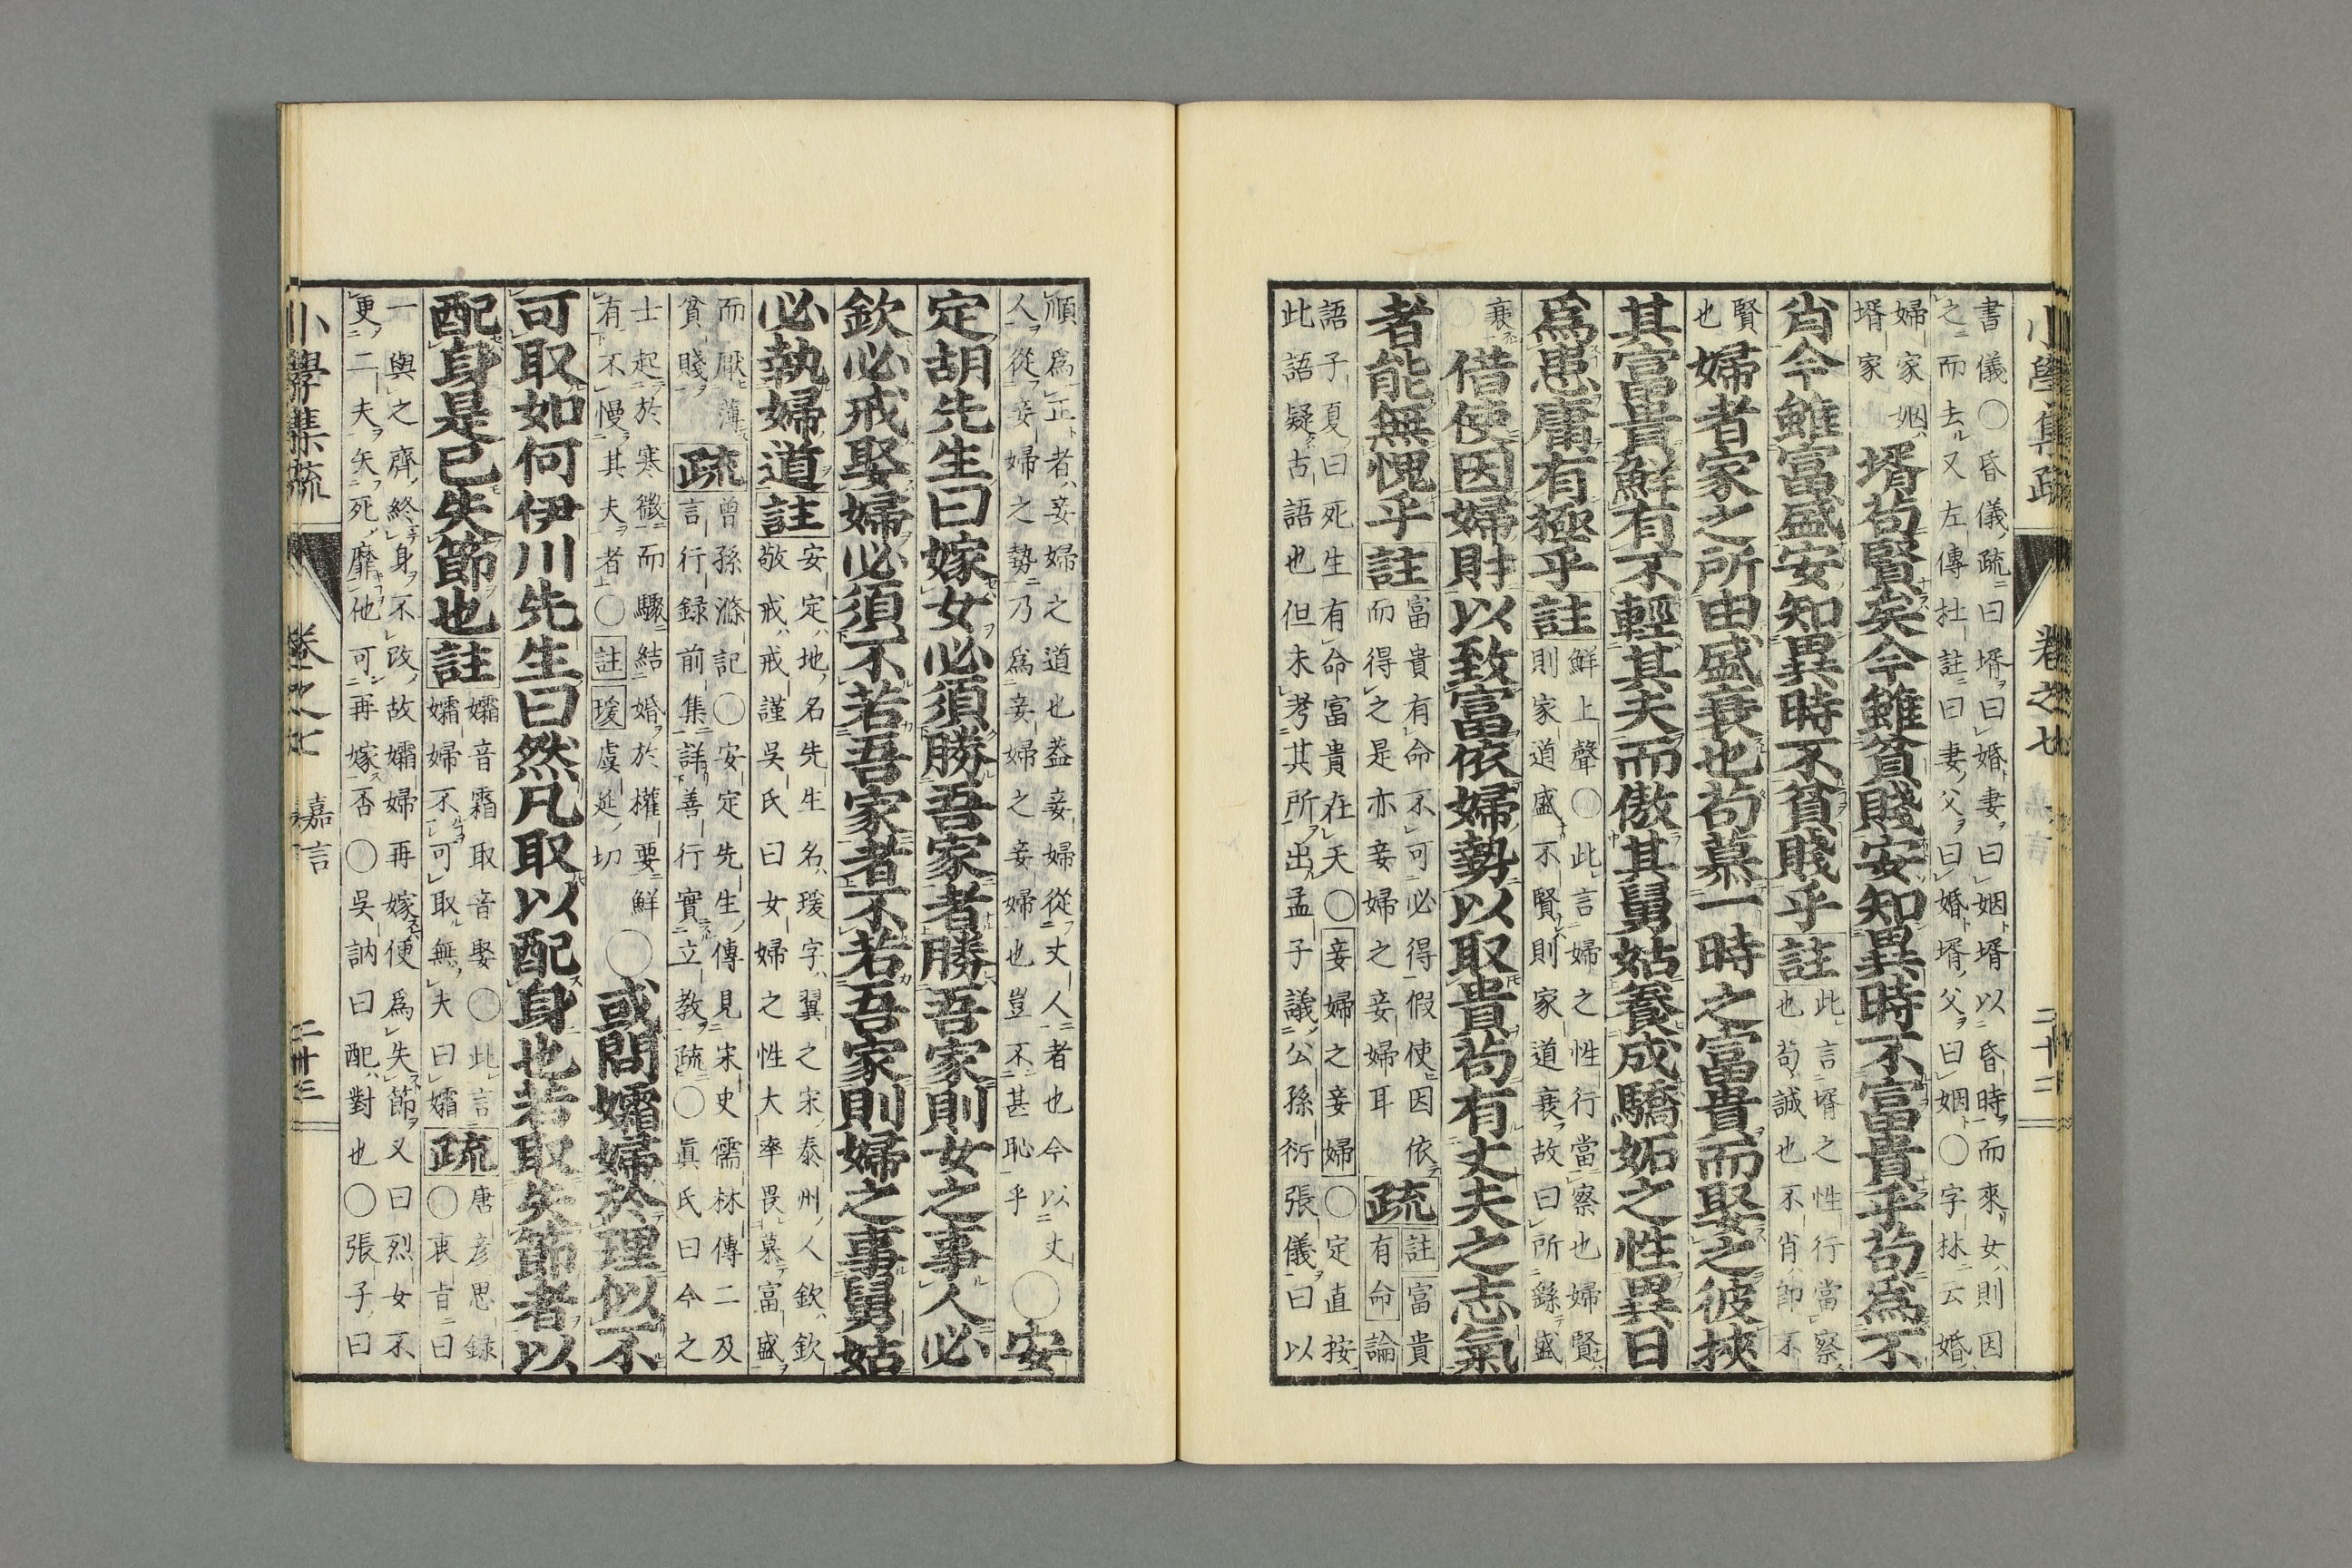 小學集疏 卷之七 二十二
書儀〇昏儀疏曰壻曰婚妻曰姻壻以昏時而來女則因
之而去又左傳杜註曰妻父曰婚壻父曰姻〇字林云婚
婦家姻
壻家
壻苟賢矣今雖貧賤安知異時不富貴乎苟爲不
肖今雖富盛安知異時不貧賤乎註
此言壻之性行當察
也苟誠也不肖即不
賢
也
婦者家之所由盛衰也苟慕一時之富貴而娶之彼挾
其富貴鮮有不輕其夫而傲其舅姑養成驕妬之性異日
爲患庸有極乎註
鮮上聲〇此言婦之性行當察也婦賢
則家道盛不賢則家道衰故曰所繇盛
衰
借使因婦財以致富依婦勢以取貴苟有丈夫之志氣
者能無愧乎註
富貴有命不可必得假使因依
而得之是亦妾婦之妾婦耳
疏
註富貴
有命論
語子夏曰死生有命富貴在天〇妾婦之妾婦〇定直按
此語疑古語也但未考其所出孟子議公孫衍張儀曰以
順爲正者妾婦之道也蓋妾婦從丈人者也今以丈
人從妾婦之勢乃爲妾婦之妾婦也豈不甚恥乎
〇安
定胡先生曰嫁女必須勝吾家者勝吾家則女之事人必
欽必戒娶婦必須不若吾家者不若吾家則婦之事舅姑
必執婦道註
安定地名先生名瑗字翼之宋泰州人欽欽
敬戒戒謹吳氏曰女婦之性大率畏慕富盛
而厭薄
貧賤
疏
曾孫滌記〇安定先生傳見宋史儒林傳二及
言行録前集詳善行實立教疏〇眞氏曰今之
士起於寒微而驟結婚於權要鮮
有不慢其夫者〇註瑗虞延切
〇或問孀婦於理似不
可取如何伊川先生曰然凡取以配身也若取失節者以
配身是己失節也註
孀音霜取音娶〇此言
孀婦不可取無夫曰孀
疏
唐彦思録
〇衷旨曰
一與之齊終身不改故孀婦再嫁便爲失節又曰烈女不
更二夫矢死靡他可再嫁否〇吳訥曰配對也〇張子曰
小學集疏 卷之七 嘉言 二十三